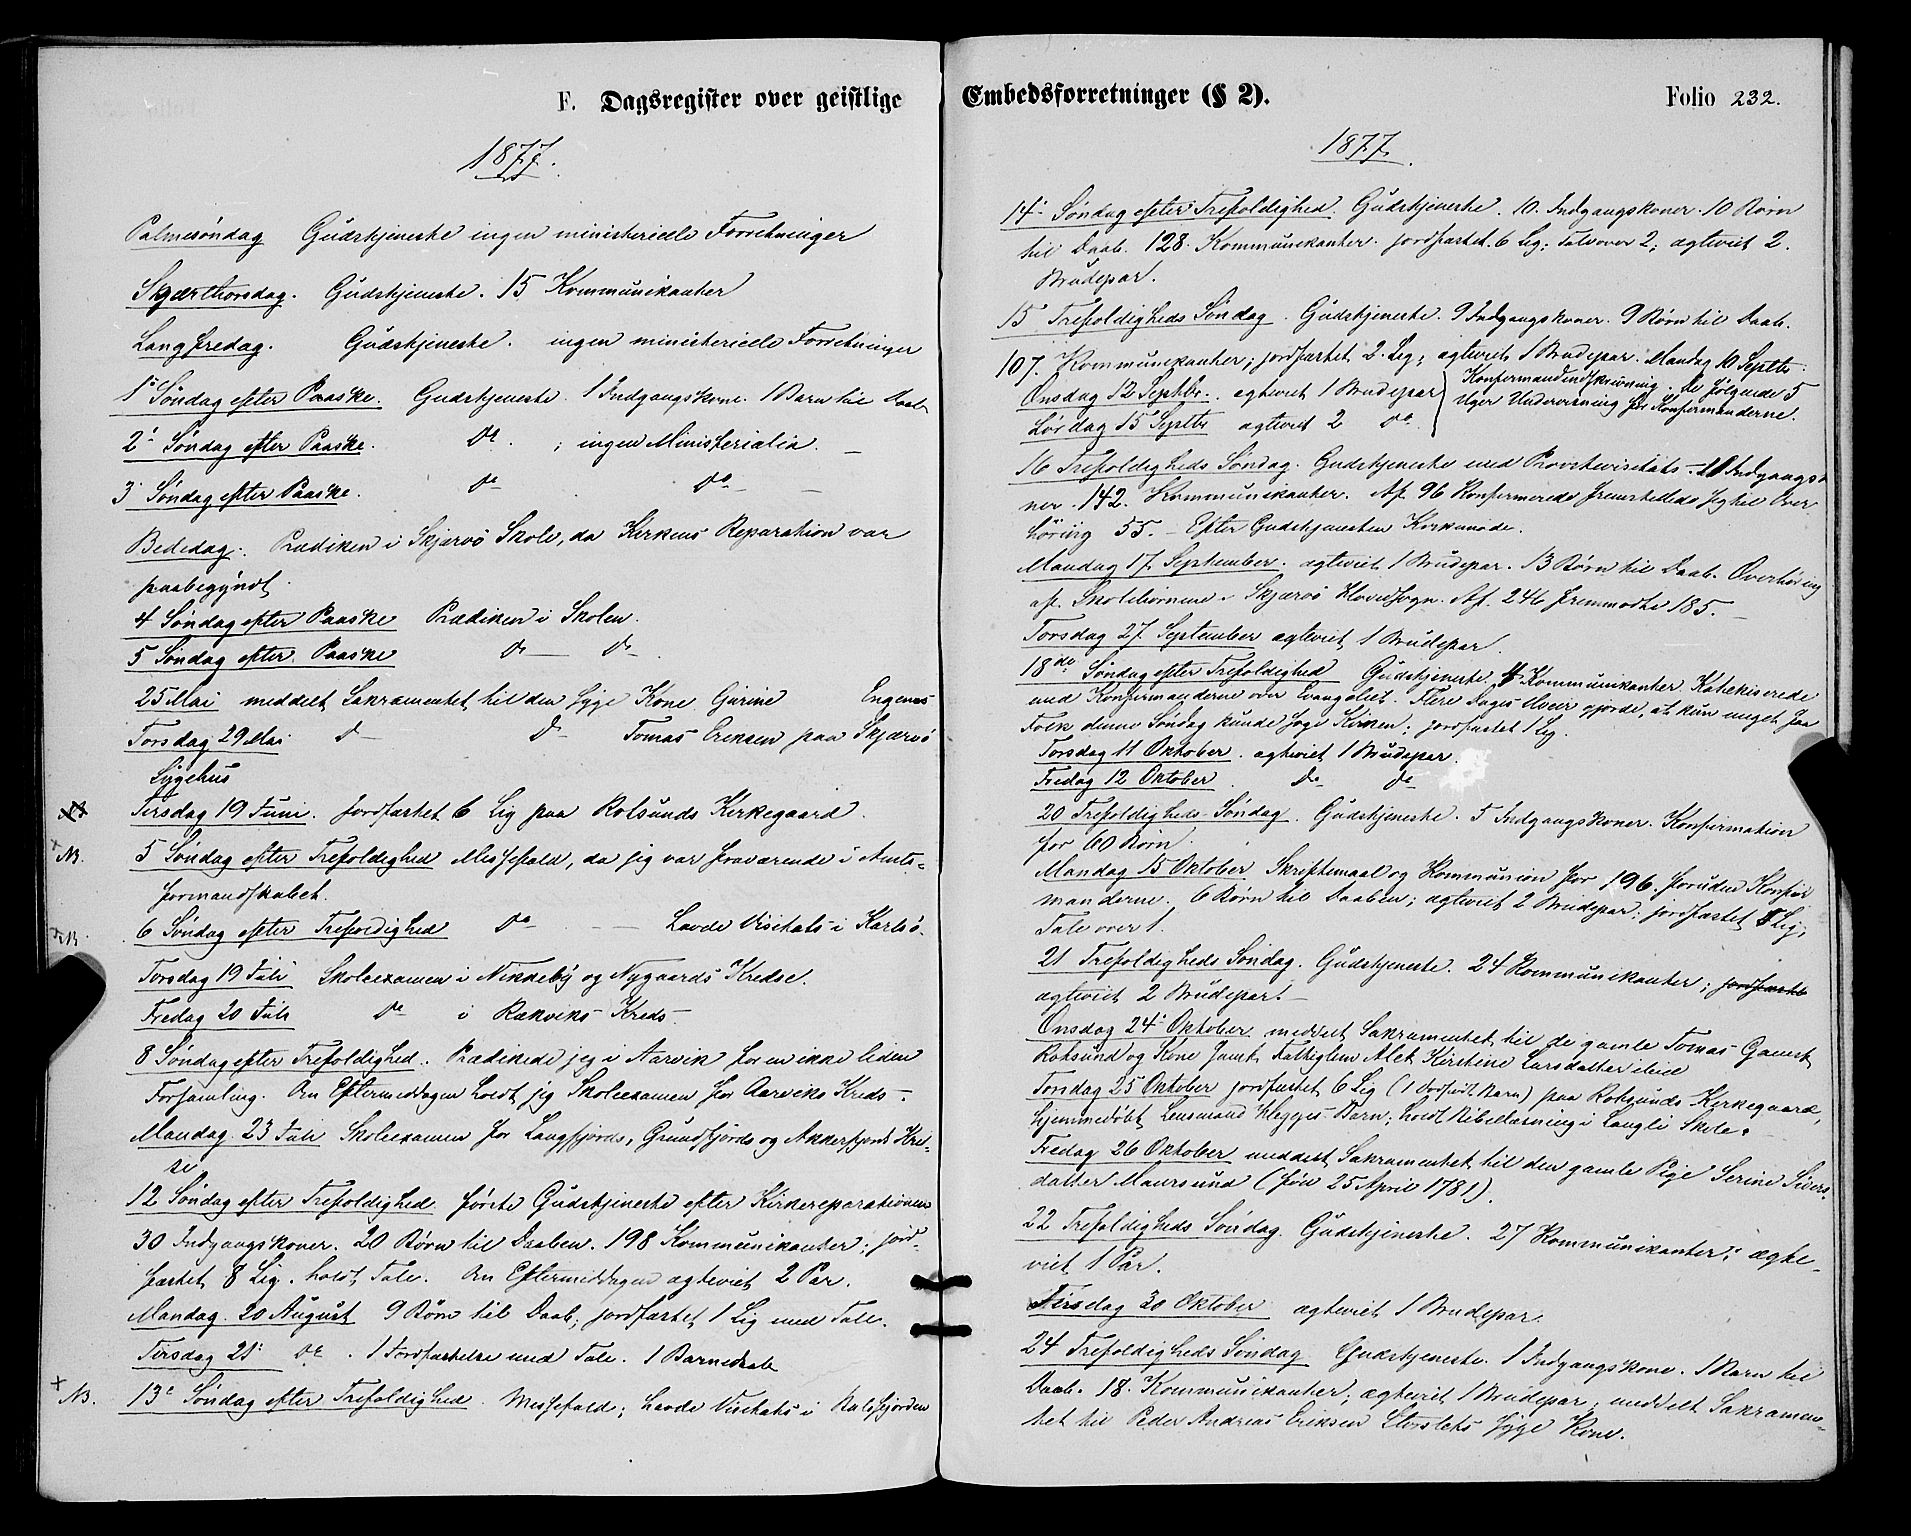 F. Dagsregister over geistlige
1877.
Palmesöndag Gudstjeneste ingen ministerielle Forretninger
Skjærthorsdag. Gudstjeneste. 15 Kommunikanter
Langfredag. Gudstjeneste. ingen ministerielle Forretninger
1ste Söndag efter Paaske. Gudstjeneste. 1 Indgangskone. 1 Barn til Daab
2' Söndag efter Paaske. do. ; ingen Ministerialia. _
3' Söndag efter Paaske. do do _
Bededag. Prædiken i Skjærvö Skole, da Kirkens Reparation var
paabegyndt.
4 Söndag efter Paaske Prædiken i Skolen.
5 Söndag efter Paaske do do
25 Mai meddelt Sakramentet til den syge Kone Gurine Engenes
Torsdag 29 Mai do do Tomas Eriksen paa Skjærvö
Sygehus
NB Tirsdag 19 Juni. jordfæstet 6 Lig paa Rotsunds Kirkegaard.
+ NB. 5 Söndag efter Trefoldighed Messefald, da jeg var fraværende i Amts-
formandskabet.
+ NB. 6 Söndag efter Trefoldighed do _ Lavde Visitats i Karlsö.
Torsdag 19 Juli Skoleexamen i Nikkeby og Nygaards Kredse.
Fredag 20 Juli do i Rækviks Kreds.
8 Söndag efter Trefoldighed. Prædikede jeg i Aarvik for en ikke liden
Forsamling. Om Eftermiddagen holdt jeg Skoleexamen for Aarviks Kreds.
Mandag 23 Juli Skoleexamen for Langfjords, Grundfjords og Akkerfjords Kred-
se
12 Söndag efter Trefoldighed förste Gudstjeneste efter Kirkereparationen
30 Indgangskoner. 20 Börn til Daaben. 198 Kommunikanter; jord-
fæstet 8 Lig. holdt Tale. Om Eftermiddagen ægteviet 2 Par.
Mandag 20 August 9 Börn til Daab; jordfæstet 1 Lig med Tale.
Tirsdag 21' do. 1 Jordfæstelse med Tale. 1 Barnedaab
+ NB. 13' Söndag efter Trefoldighed. Messefald; Lavde Visitats i Balsfjorden
Embedsforretninger (§ 2). Folio 232.
1877.
14' Söndag efter Trefoldighed. Gudstjeneste. 10. Indgangskoner. 10 Börn
til Daab. 128. Kommunikanter. jordfæstet. 6 Lig; Tale over 2; ægteviet 2.
Brudepar.
15 Trefoldigheds Söndag. Gudstjeneste. 9 Indgangskoner. 9 Börn til Daab.
107. Kommunikanter; jordfæstet 2. Lig; ægteviet 1 Brudepar. Mandag 10 Septbr.
Konfirmandindskrivning. de fölgende 5
Onsdag 12 Septbr. ægteviet 1 Brudepar
Uger Undervisning for Konfirmanderne.
Lördag 15 Septbr ægteviet 2 do
16 Trefoldigheds Söndag. Gudstjeneste med Provstevisitats. Indgangsko-
ner. 142. Kommunikanter. Af 96 Konfirmerede fremstillede sig til Over
höring 55. - Efter Gudstjenesten Kirkemöde.
Mandag 17 September. ægteviet 1 Brudepar. 13 Börn til Daab. Overhöring
af Skolebörnene i Skjærvö Hovedsogn. Af 246 fremmödte 185. _
Torsdag 27 September ægteviet 1 Brudepar.
18de Söndag efter Trefoldighed Gudstjeneste. 4 Kommunikanter Katekiserede
med Konfirmanderne over Evangeliet. Flere Dages Uveir gjorde, at kun meget faa
Folk denne Söndag kunde söge Kirken; jordfæstet 1 Lig.
Torsdag 11 Oktober. ægteviet 1 Brudepar.
Fredag 12 Oktober. do do
20 Trefoldigheds Söndag. Gudstjeneste. 5 Indgangskoner. Konfirmation
for 60 Börn.
Mandag 15 Oktober Skriftemaal og Kommunion for 196. foruden Konfir
manderne. 6 Börn til Daaben; ægteviet 2 Brudepar; jordfæstet Lig;
Tale over 1.
21 Trefoldigheds Söndag. Gudstjeneste. 24 Kommunikanter; jordfæstet
ægteviet 2 Brudepar. _
Onsdag 24' Oktober meddelt Sakramentet til de gamle Tomas
Rotsund og Kone samt Fattiglem Alet Kirstine Larsdatter
Torsdag 25 Oktober jordfæstet 6 Lig (1 dödfödt Barn) paa Rotsunds Kirkegaard,
hjemmedöbt Lensmand Barn; holdt Bibellæsning i Langli Skole.
Fredag 26 Oktober meddelt Sakramentet til den gamle Pige Serine Sivers
datter Maursund (föd 25 April 1781).
22 Trefoldigheds Söndag. Gudstjeneste. 27 Kommunikanter; ægte-
viet 1 Par.
Tirsdag 30 Oktober ægteviet 1 Brudepar.
24 Trefoldigheds Söndag Gudstjeneste. 1 Indgangskone. 1 Barn til
Daab. 18. Kommunikanter; ægteviet 1 Brudepar; meddelt Sakramen-
tet til Peder Andreas Eriksen Storslets syge Kone.